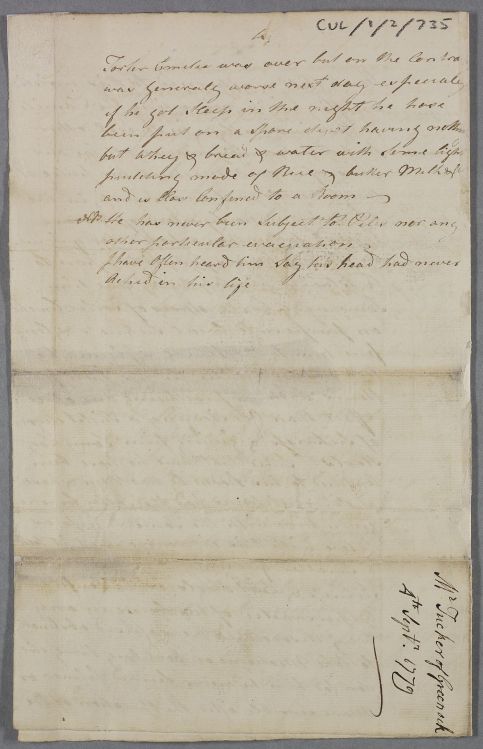 CUL/1/2/735
4
was over but on the Contra
was generaly worse next day especialy
if he got Sleep in the night he have
been put on a spare diet having nothin
but whey & bread & water with Some light
pudding made of Rice & butter Milk &c
and is also Confined to a Room
NB He has never been Subject to Piles nor any
other particular evacuation
I have Often heard him Say his head had never
Ached in his life
Mr. Tucker of Greenock
4th Septr. 1779